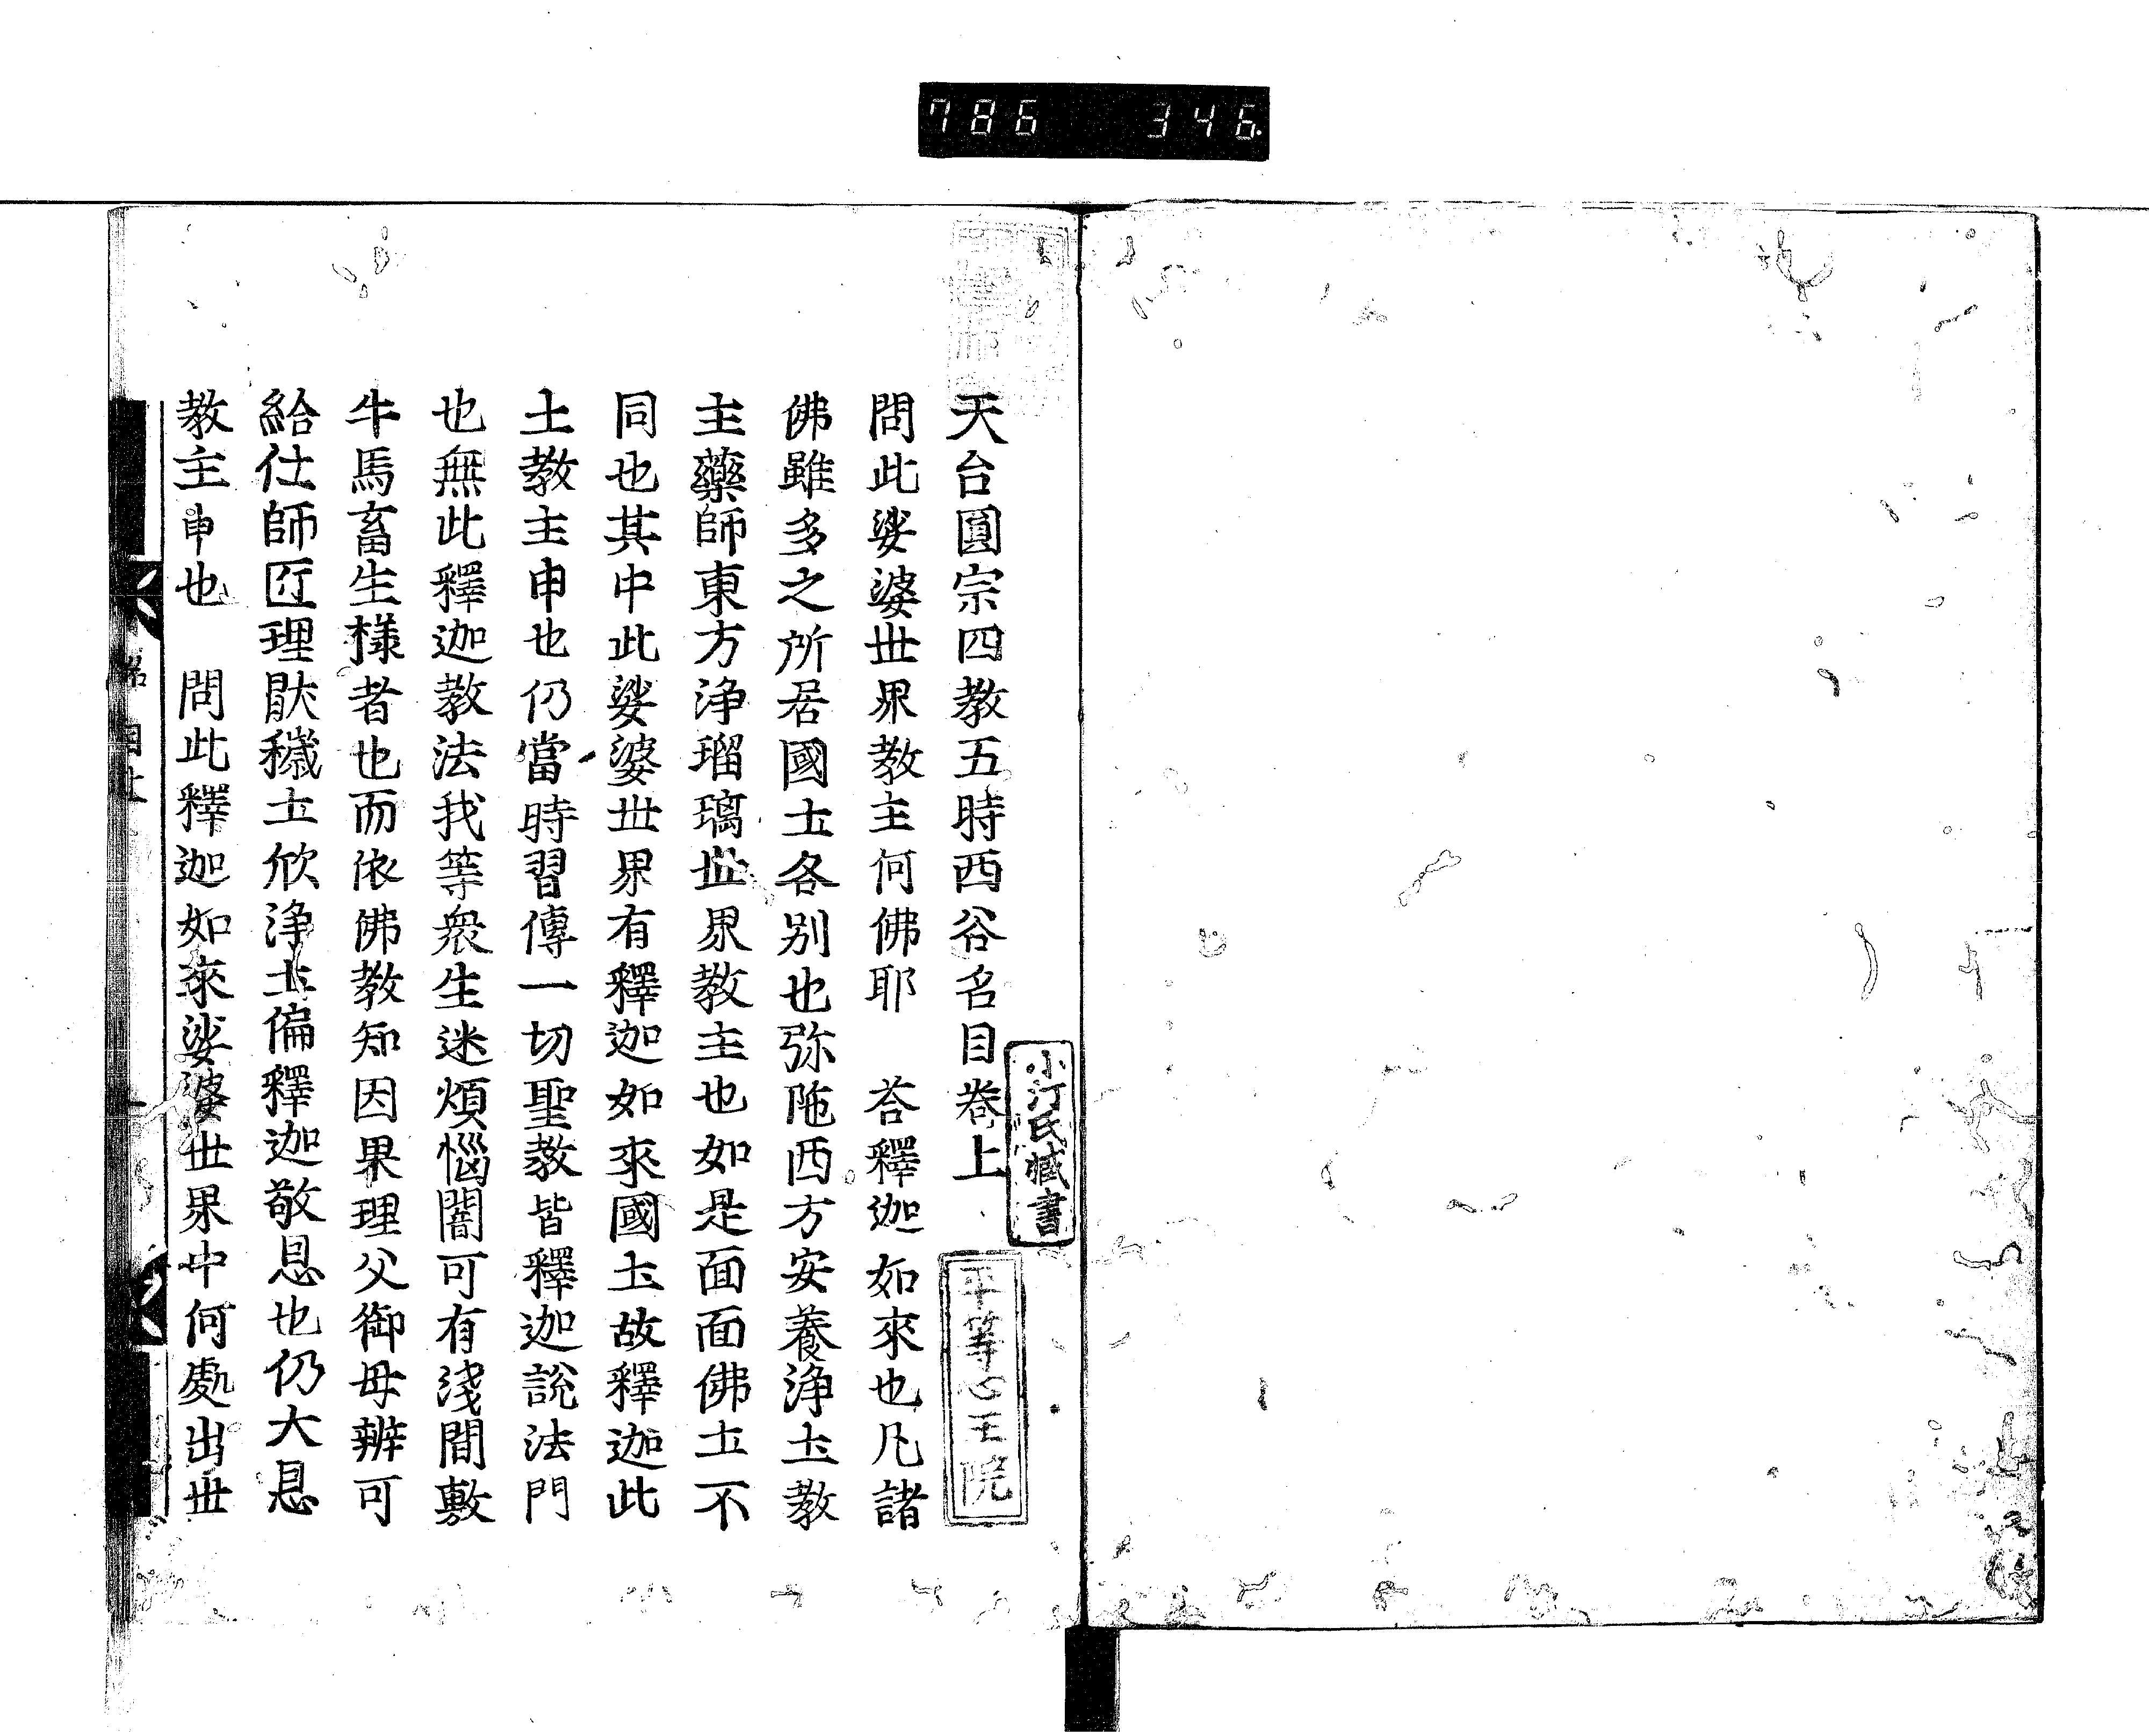 786 346.
天台圓宗四教五時西谷名目卷上
小汀氏蔵書
平等心王院
問此娑婆世界教主何佛耶　荅釋迦如來也凡諸
佛雖多之所居國土各別也弥陁西方安養淨土教
主藥師東方淨瑠璃世界教主也如是面面佛土不
同也其中此娑婆世界有釋迦如來國土故釋迦此
土教主申也仍當時習傳一切聖教皆釋迦說法門
也無此釋迦教法我等衆生迷煩惱闇可有淺間敷
牛馬畜生樣者也而依佛教知因果理父御母辨可
給仕師匠理猒穢土欣淨土偏釋迦敬恩也仍大恩
教主申也　問此釋迦如來娑婆世界中何處出世